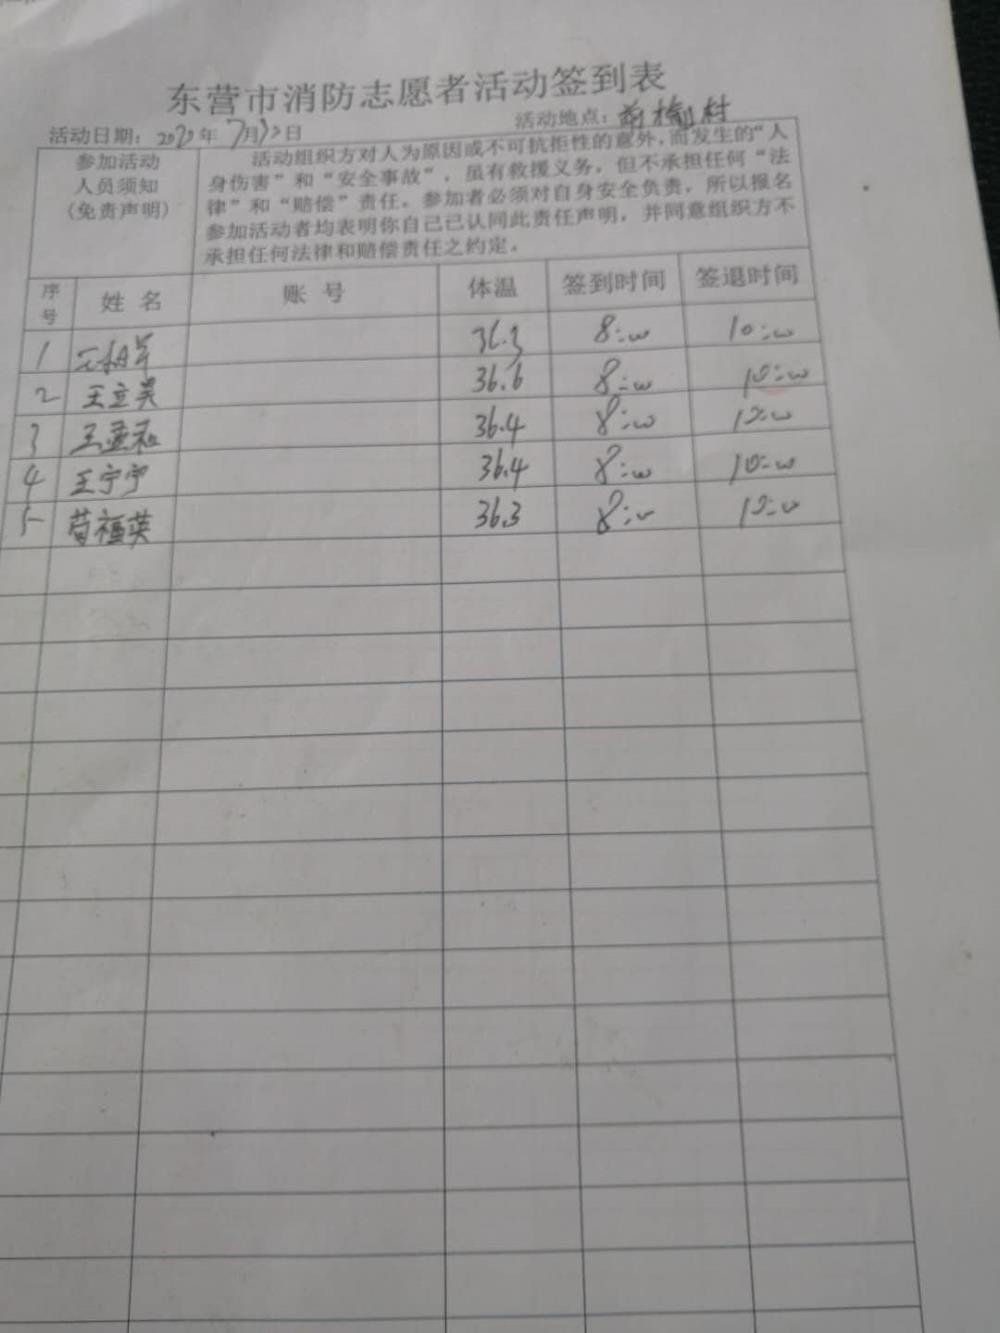 东营市消防志愿者活动签到表
活动日期：2020年7月 日 活动地点：前 村
参加活动
人员须知
(免责声明)
活动组织方对人为原因或不可抗拒性的意外，而发生的“人
身伤害”和“安全事故”，虽有救援义务，但不承担任何“法
律”和“赔偿”责任。参加者必须对自身安全负责，所以报名
参加活动者均表明你自己已认同此责任声明，并同意组织方不
承担任何法律和赔偿责任之约定。
序号 姓名 账号 体温 签到时间 签退时间
1 36.3 8:00 10:00
2 王立昊 36.6 8:00 10:00
3 王 36.4 8:00 10:00
4 王宁宁 36.4 8:00 10:00
5 苟福英 36.3 8:00 10:00